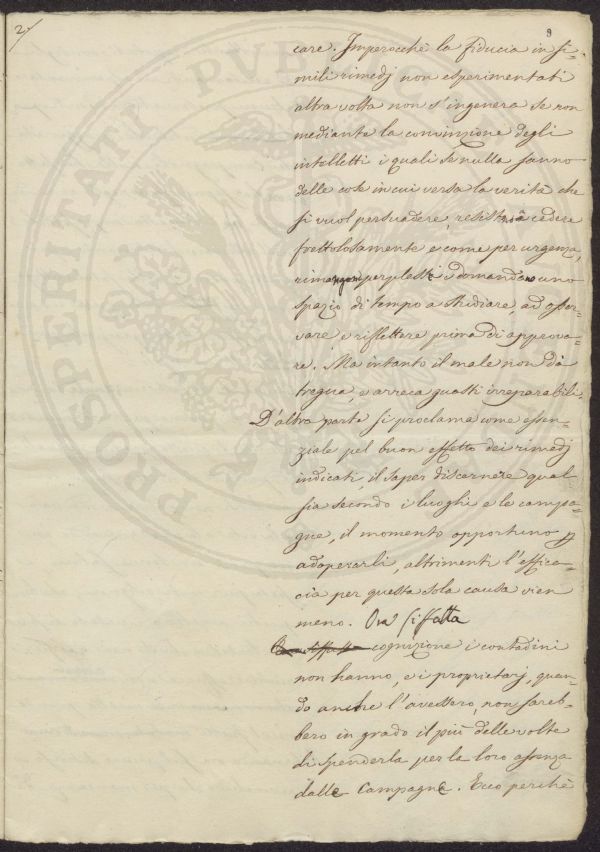 2/
9
care. Imperocchè la fiducia in si-
mili rimedj non esperimentati
altra volta non s'ingenera se non
mediante la convinzione degli
intelletti i quali se nulla sanno
delle cose in cui versa la verità che
si vuol persuadere, resistono a cedere
frettolosamente e come per urgenza,
rimangon perplessi e domandano uno
spazio di tempo a studiare, ad osser-
vare e riflettere prima di approva-
re. Ma intanto il male non dà
tregua, e arreca guasti irreparabili.
D'altra parte si proclama come essen-
ziale pel buon effetto dei rimedj
indicati, il saper discernere qual
sia secondo i luoghi e le campa-
gne, il momento opportuno p
adoperarli, altrimenti l'effica-
cia per questa sola causa vien
meno. Ora siffatta
cognizione i contadini
non hanno, e i proprietarj, quan-
do anche l'avessero, non sareb-
bero in grado il più delle volte
di spenderla per la loro assenza
dalle Campagne. Ecco perchè
PROSPERITATI PVBLICAE